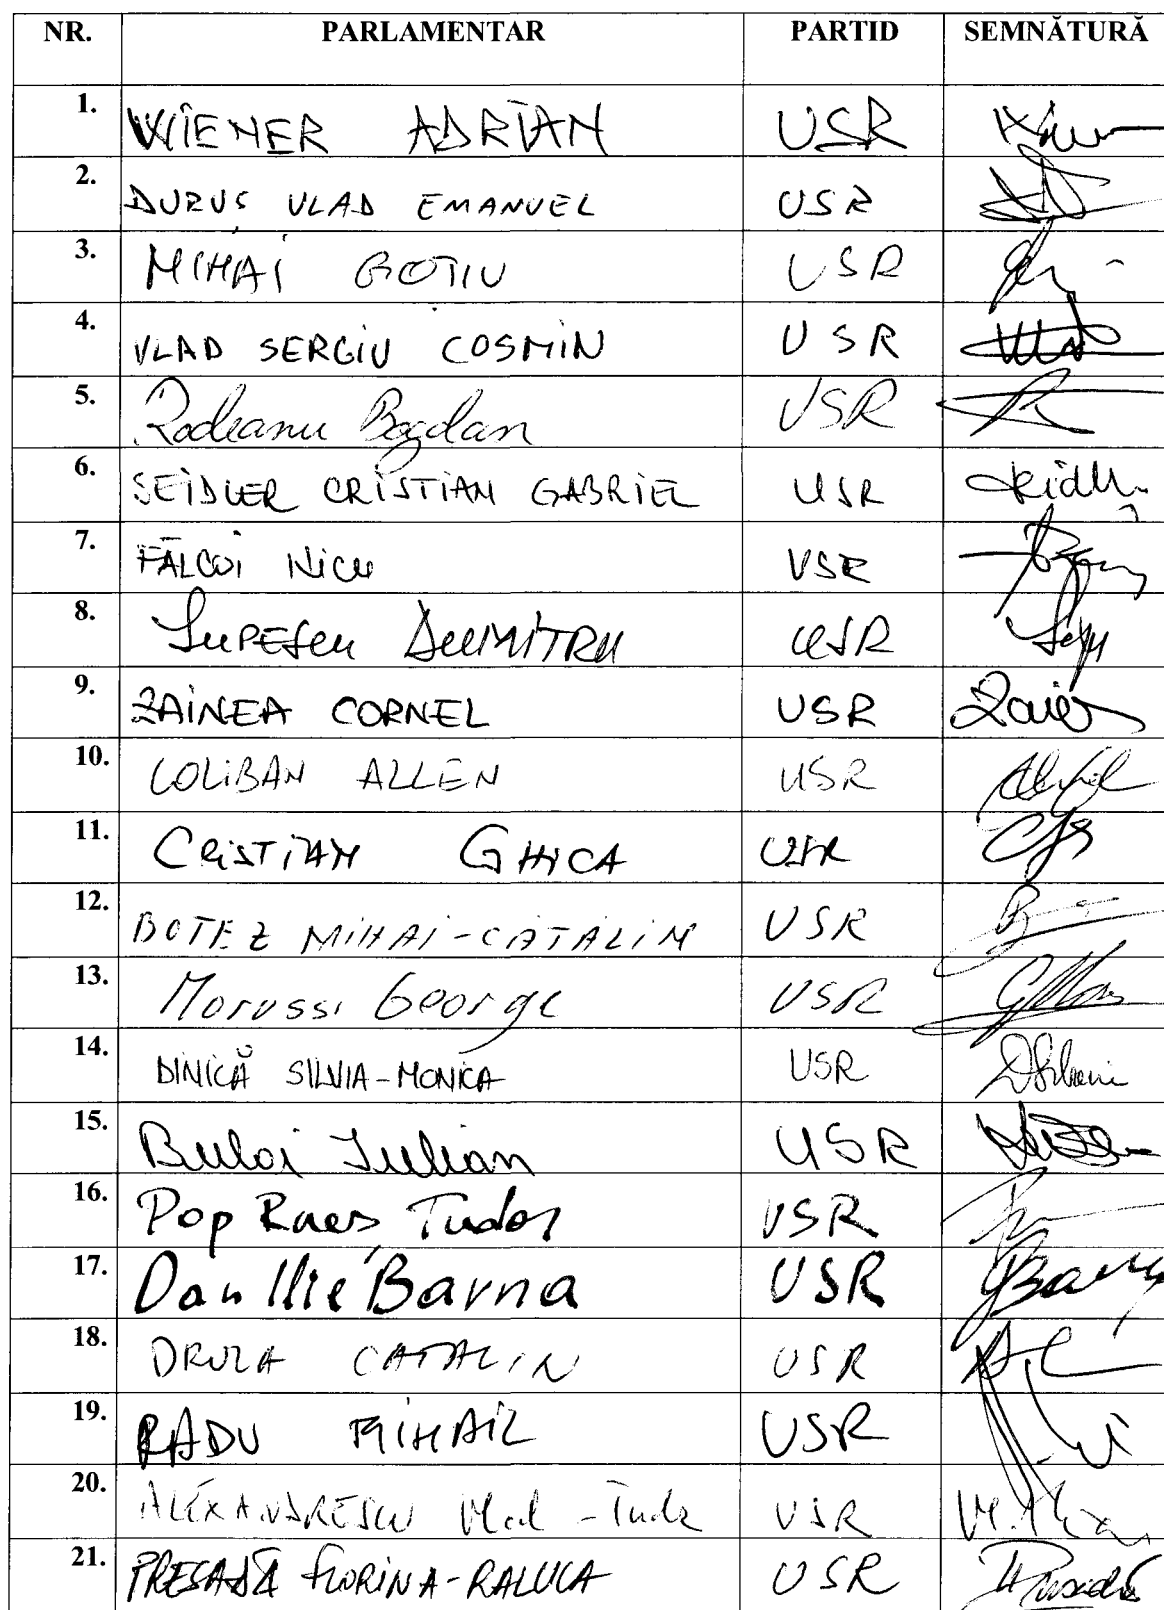 NR. PARLAMENTAR PARTID SEMNĂTURĂ
1. WIENER ADRIAN USR
2. DURUȘ VLAD EMANUEL USR
3. MIHAI GOȚIU USR
4. VLAD SERGIU COSMIN USR
5. Rodeanu Bogdan USR
6. SEIDLER CRISTIAN GABRIEL USR
7. FĂLCOI Nicu USR
8. LUPESCU DUMITRU USR
9. ZAINEA CORNEL USR
10. COLIBAN ALLEN USR
11. CRISTIAN GHICA USR
12. BOTEZ MIHAI-CĂTĂLIN USR
13. Marussi George USR
14. DINICĂ SILVIA-MONICA USR
15. Bulai Iulian USR
16. Pop Rareș Tudor USR
17. Dan Ilie Barna USR
18. DRULA CATALIN USR
19. RADU MIHAIL USR
20. ALEXANDRESCU Vlad-Tudor USR
21. PRESADĂ FLORINA-RALUCA USR